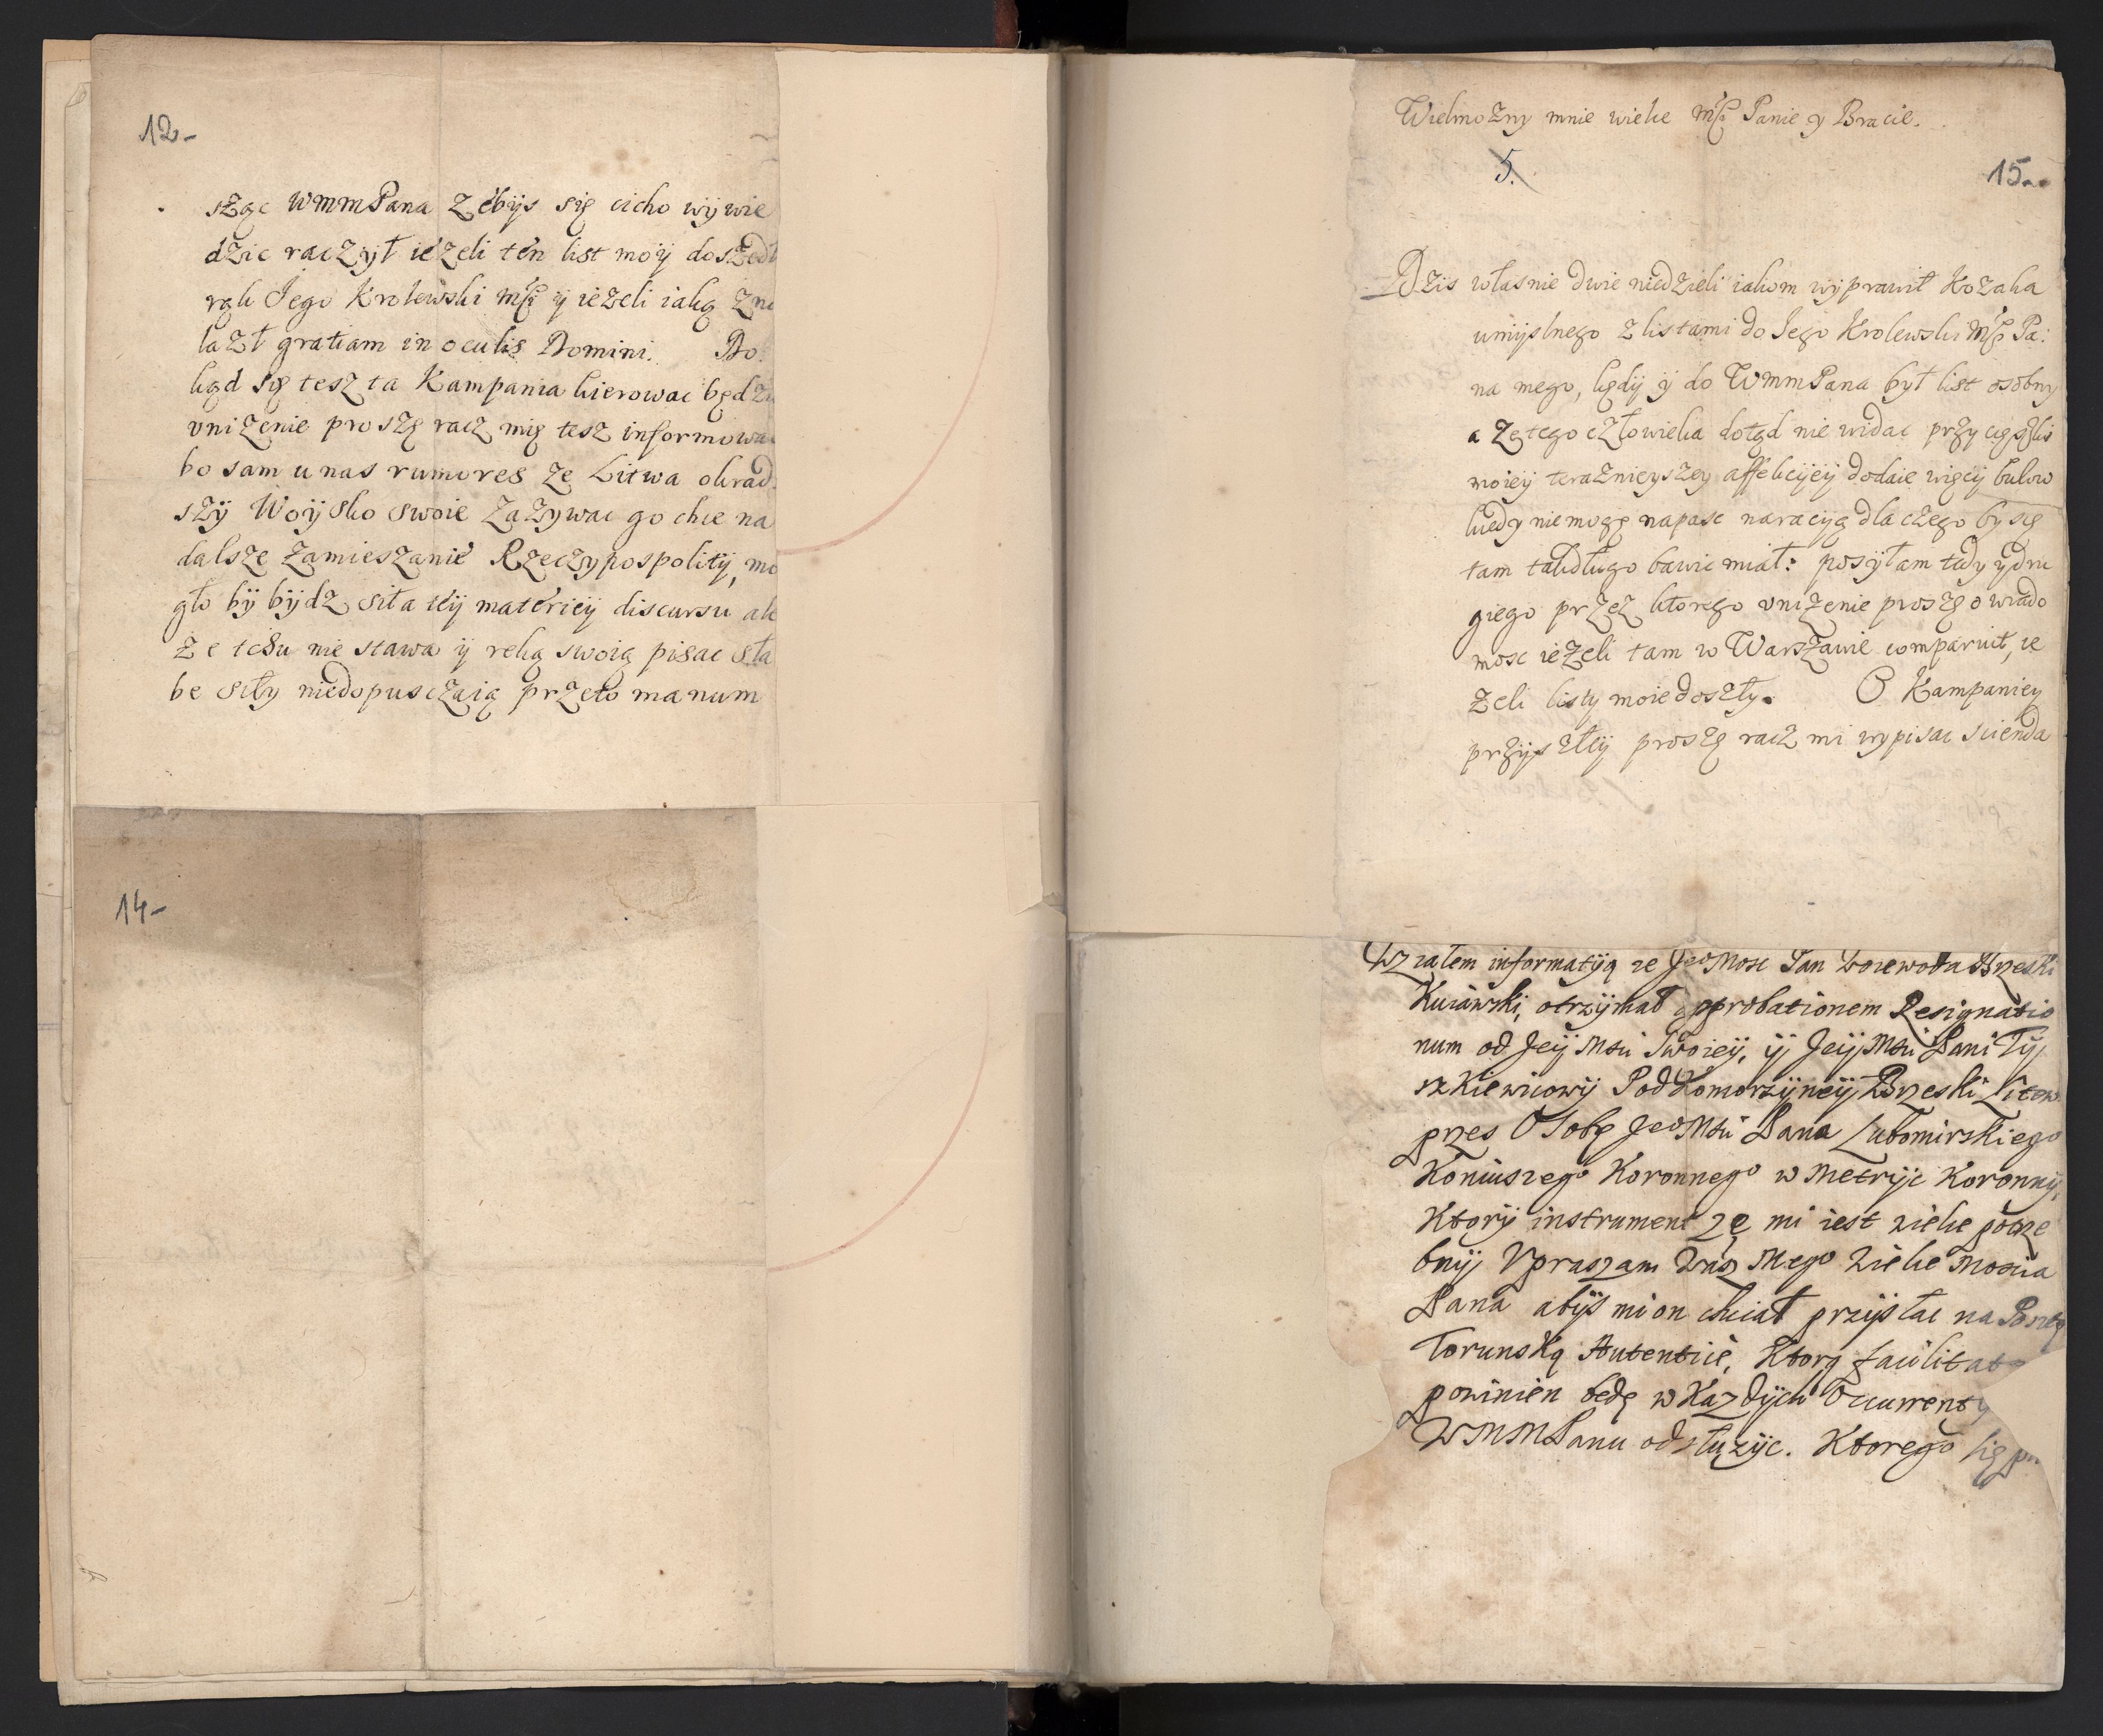 12-
sząc WMMPana zebys się cicho wywie
dzic raczył iezeli ten list moy doszedł
rąk Jego Krolewski Mści y iezeli iaką zna
lazł gratiam in oculis Domini. Do
kąd się tesz ta Kampania kierowac będzie
vnizenie proszę racz mię tesz informowac
bo sam u nas rumores ze Litwa okrad
szy Woysko swoie zazywac go chce na
dalsze zamieszanie Rzeczypospolity, mo
gło by bydz siła tey materiey discursu ale
ze tchu nie stawa y ręką swoią pisac sła
be siły niedopusczaią przeto manum
14-
Wielmozny mnie wielce Mści Panie y Bracie.
5.
15.
Dzis własnie dwie niedzieli iakom wyprawił Kozaka
umyslnego z listami do Jego Krolewski Mści Pa:
na mego, kędy y do WMMPana był list osobny
a ze tego człowieka dotąd nie widac przy
moiey teraznieyszey affekcyey dodaie więcy
kiedy niemogę napasc naracyą dla czego by się
tam takdługo bawic miał: posyłam tedy y dru
giego przez ktorego vnizenie proszę o wiado
mosc iezeli tam w Warszawie comparuit, ie
zeli listy moie doszły. O Kampaniey
przyszłey proszę racz mi wypisac scienda
Wziąłem informatyą ze JeoMosc Pan Woiewoda Brzeski
Kuiawski, otrzymał approbationem Resignatio
num od Jey Msci Swoiey, y Jey Msci Pani Ty
szkiewicowy PodKomorzyney Brzeski Litew.
przes Osobę JeoMsci Pana Lubomirskiego
Koniuszego Koronnego w Metryc Koronny,
Ktory instrument ze mi iest wielce potrze
bny Vpraszam Wasz Mego Wielce Moscia
Pana abys mi on chciał przysłac na
Torunską Autentice, Ktorą facilitat
powinien będę w Kazdych Occurrenty
WMMPanu odsłuzyc. Ktorego się